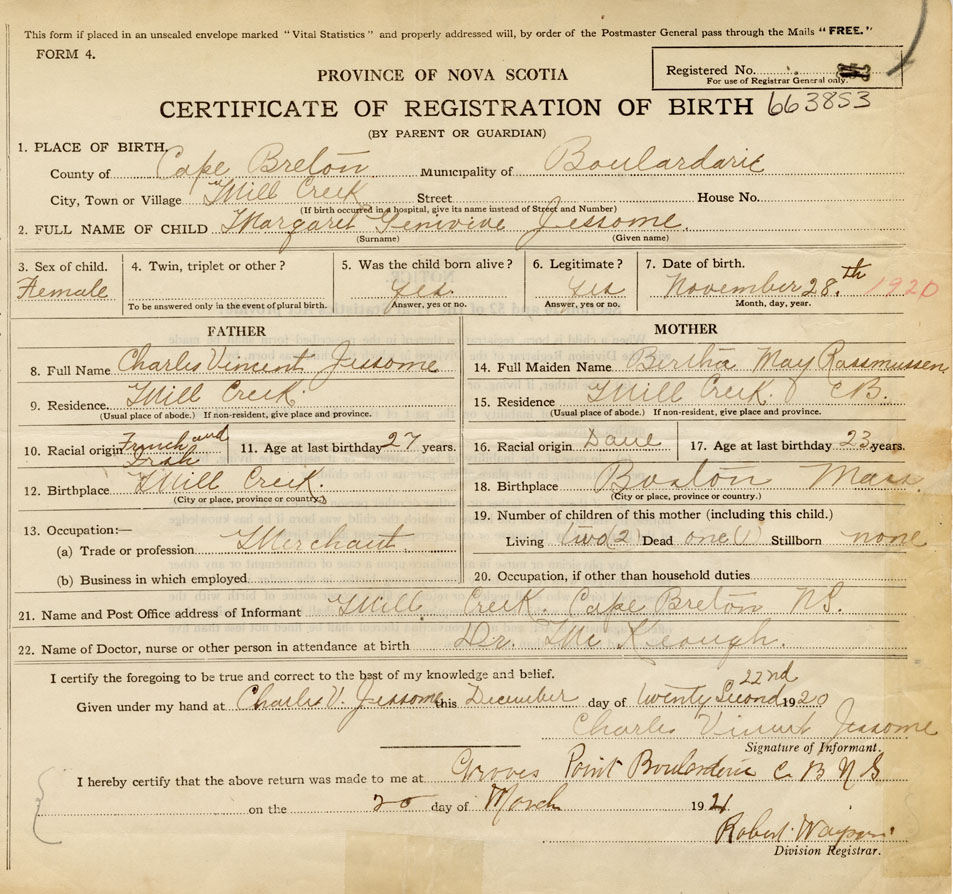 This form if placed in an unsealed envelope marked "Vital Statistics" and properly addressed will, by order of the Postmaster General pass through the Mails "FREE."
FORM 4.
PROVINCE OF NOVA SCOTIA
Registered No.
For use of Registrar General only.
CERTIFICATE OF REGISTRATION OF BIRTH 663853
(BY PARENT OR GUARDIAN)
1. PLACE OF BIRTH.
County of Cape Breton Municipality of Boulardarie
City, Town or Village Mill Creek Street House No.
(If birth occurred in a hospital, give its name instead of Street and Number)
2. FULL NAME OF CHILD Margaret Genivive Jessome.
(Surname) (Given name)
3. Sex of child. 4. Twin, triplet or other? 5. Was the child born alive? 6. Legitimate? 7. Date of birth.
Female yes yes November 28.th 1920
To be answered only in the event of plural birth. Answer, yes or no. Answer, yes or no. Month, day, year.
FATHER MOTHER
8. Full Name Charles Vincent Jessome 14. Full Maiden Name Bertha May Rassmussen
9. Residence Mill Creek. 15. Residence Mill Creek. CB.
(Usual place of abode.) If non-resident, give place and province. (Usual place of abode.) If non-resident, give place and province.
10. Racial origin French and Irish 11. Age at last birthday 27 years. 16. Racial origin Dane 17. Age at last birthday 23 years.
12. Birthplace Mill Creek. 18. Birthplace Boston Mass.
(City or place, province or country.) (City or place, province or country.)
13. Occupation:— 19. Number of children of this mother (including this child.)
(a) Trade or profession Merchant Living two (2) Dead one (1) Stillborn none
(b) Business in which employed 20. Occupation, if other than household duties
21. Name and Post Office address of Informant Mill Creek. Cape Breton NS.
22. Name of Doctor, nurse or other person in attendance at birth Dr. Mc Keough.
I certify the foregoing to be true and correct to the best of my knowledge and belief.
Given under my hand at Charles V. Jessome this December day of twenty Second 22nd 1920
Charles Vincent Jessome
Signature of Informant.
I hereby certify that the above return was made to me at Groves Point Boulardarie C B N S
on the 20 day of March 1921
Robert
Division Registrar.